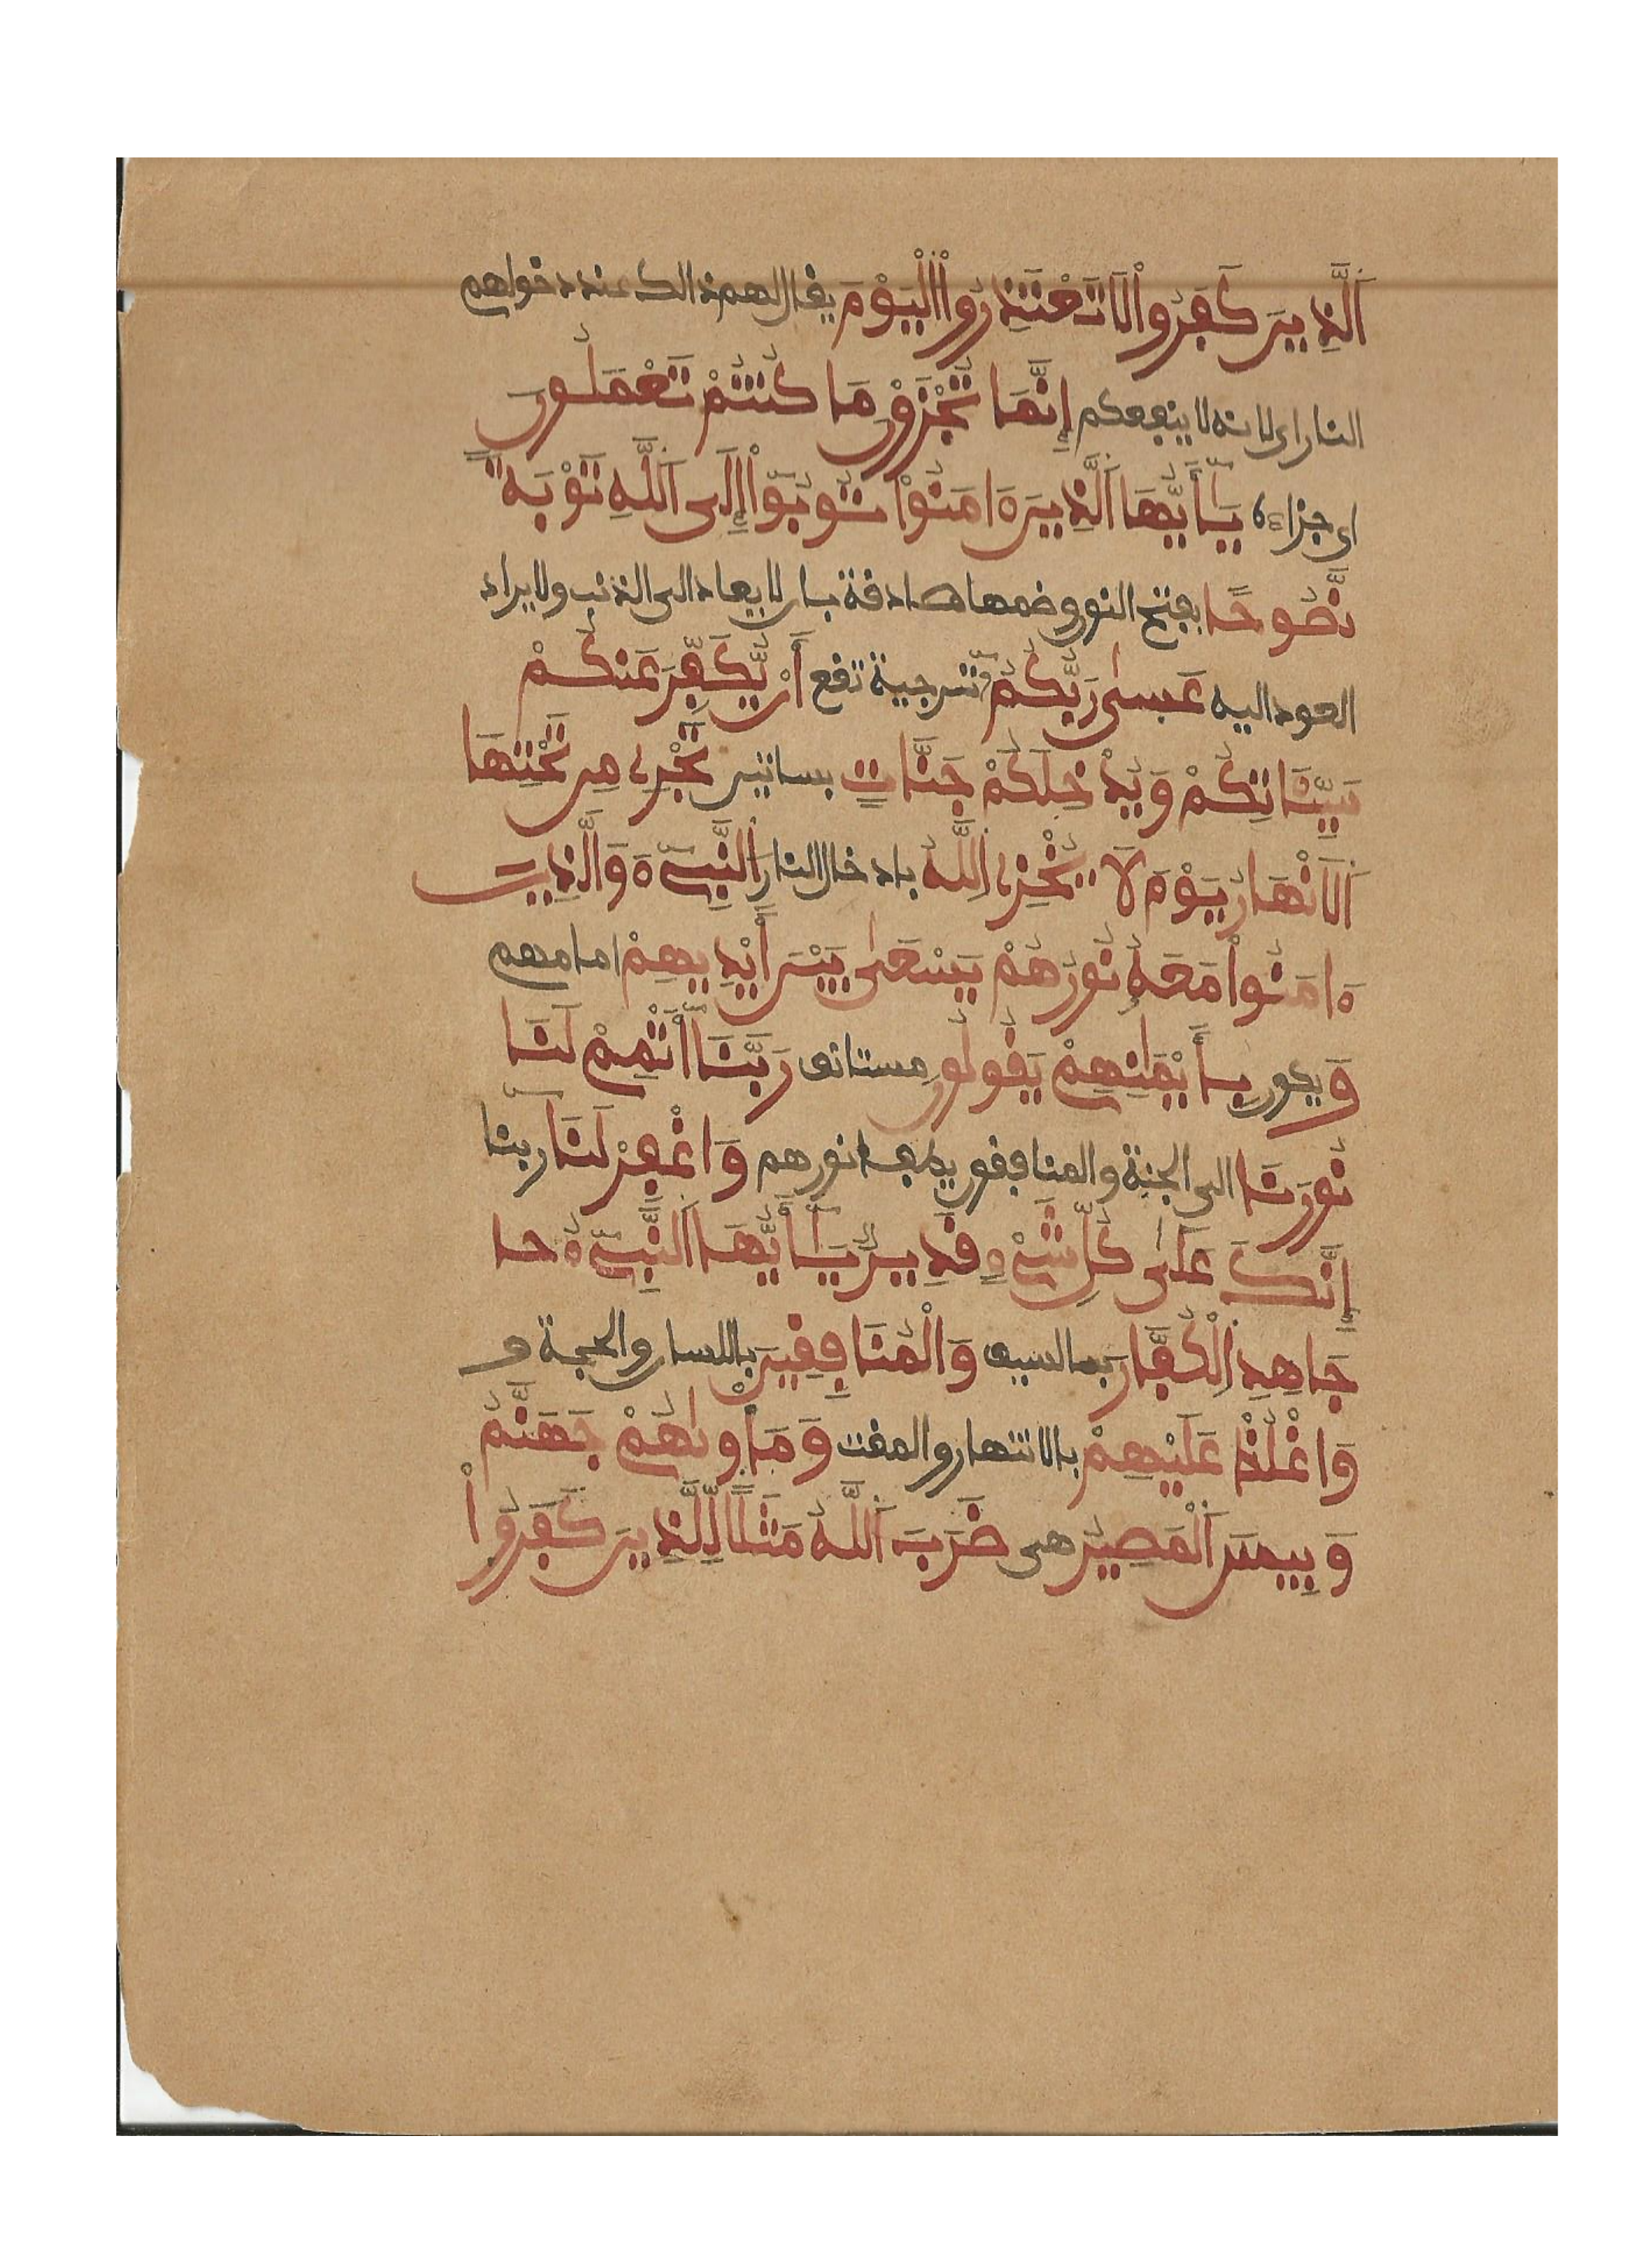 اَ۬لذِينَ كَفَرُواْ لَا تَعْتَذِرُواْ اُ۬لْيَوْمَ يقال لهم ذالك عند دخولهم
النار اى لانه لا ينفعكم إِنَّمَا تُجْزَوْنَ مَا كُنتُمْ تَعْمَلُونَ
اى جزاءه يَٰأَيُّهَا اَ۬لذِينَ ءَامَنُواْ تُوبُواْ إِلَى اَ۬للَّهِ تَوْبَةٗ
نَّصُوحًا بفتح النون وضمها صادقة بان لا يعاد الى الذنب ولا يراد
العود اليه عَسىٰ رَبُّكُمْ ترجية تقع أَنْ يُّكَفِّرَ عَنكُمْ
سَيِّـَٔاتِكُمْ وَيُدْخِلَكُمْ جَنَّاتٍ بساتين تَجْرِے مِن تَحْتِهَا
اَ۬لَانْهَارُ يَوْمَ لَا يُخْزِے اِ۬للَّهُ بادخال النار اَ۬لنَّبِےٓءَ وَالَّذِينَ
ءَامَنُواْ مَعَهُ نُورُهُمْ يَسْعَىٰ بَيْنَ أَيْدِيهِمْ امامهم
وَ يكون بِأَيْمَٰنِهِمْ يَقُولُونَ مستانف رَبَّنَا أَتْمِمْ لَنَا
نُورَنَا الى الجنة والمنافقون يطفء نورهم وَاغْفِرْ لَنَا ربنا
إِنَّكَ عَلَىٰ كُلِّ شَےْءٍ قَدِيرٌ يَٰأَيُّهَا اَ۬لنَّبِےٓءُ حا
جَاهِدِ اِ۬لْكُفَّارَ بالسيف وَالْمُنَافِقِينَ باللسان والحجة و
وَاغْلُظْ عَلَيْهِمْ بالانتهار والمقت وَمَأْوٰىهُمْ جَهَنَّمُ
وَبِيسَ اَ۬لْمَصِيرُ هى ضَرَبَ اَ۬للَّهُ مَثَلًا لِّلَّذِينَ كَفَرُواْ